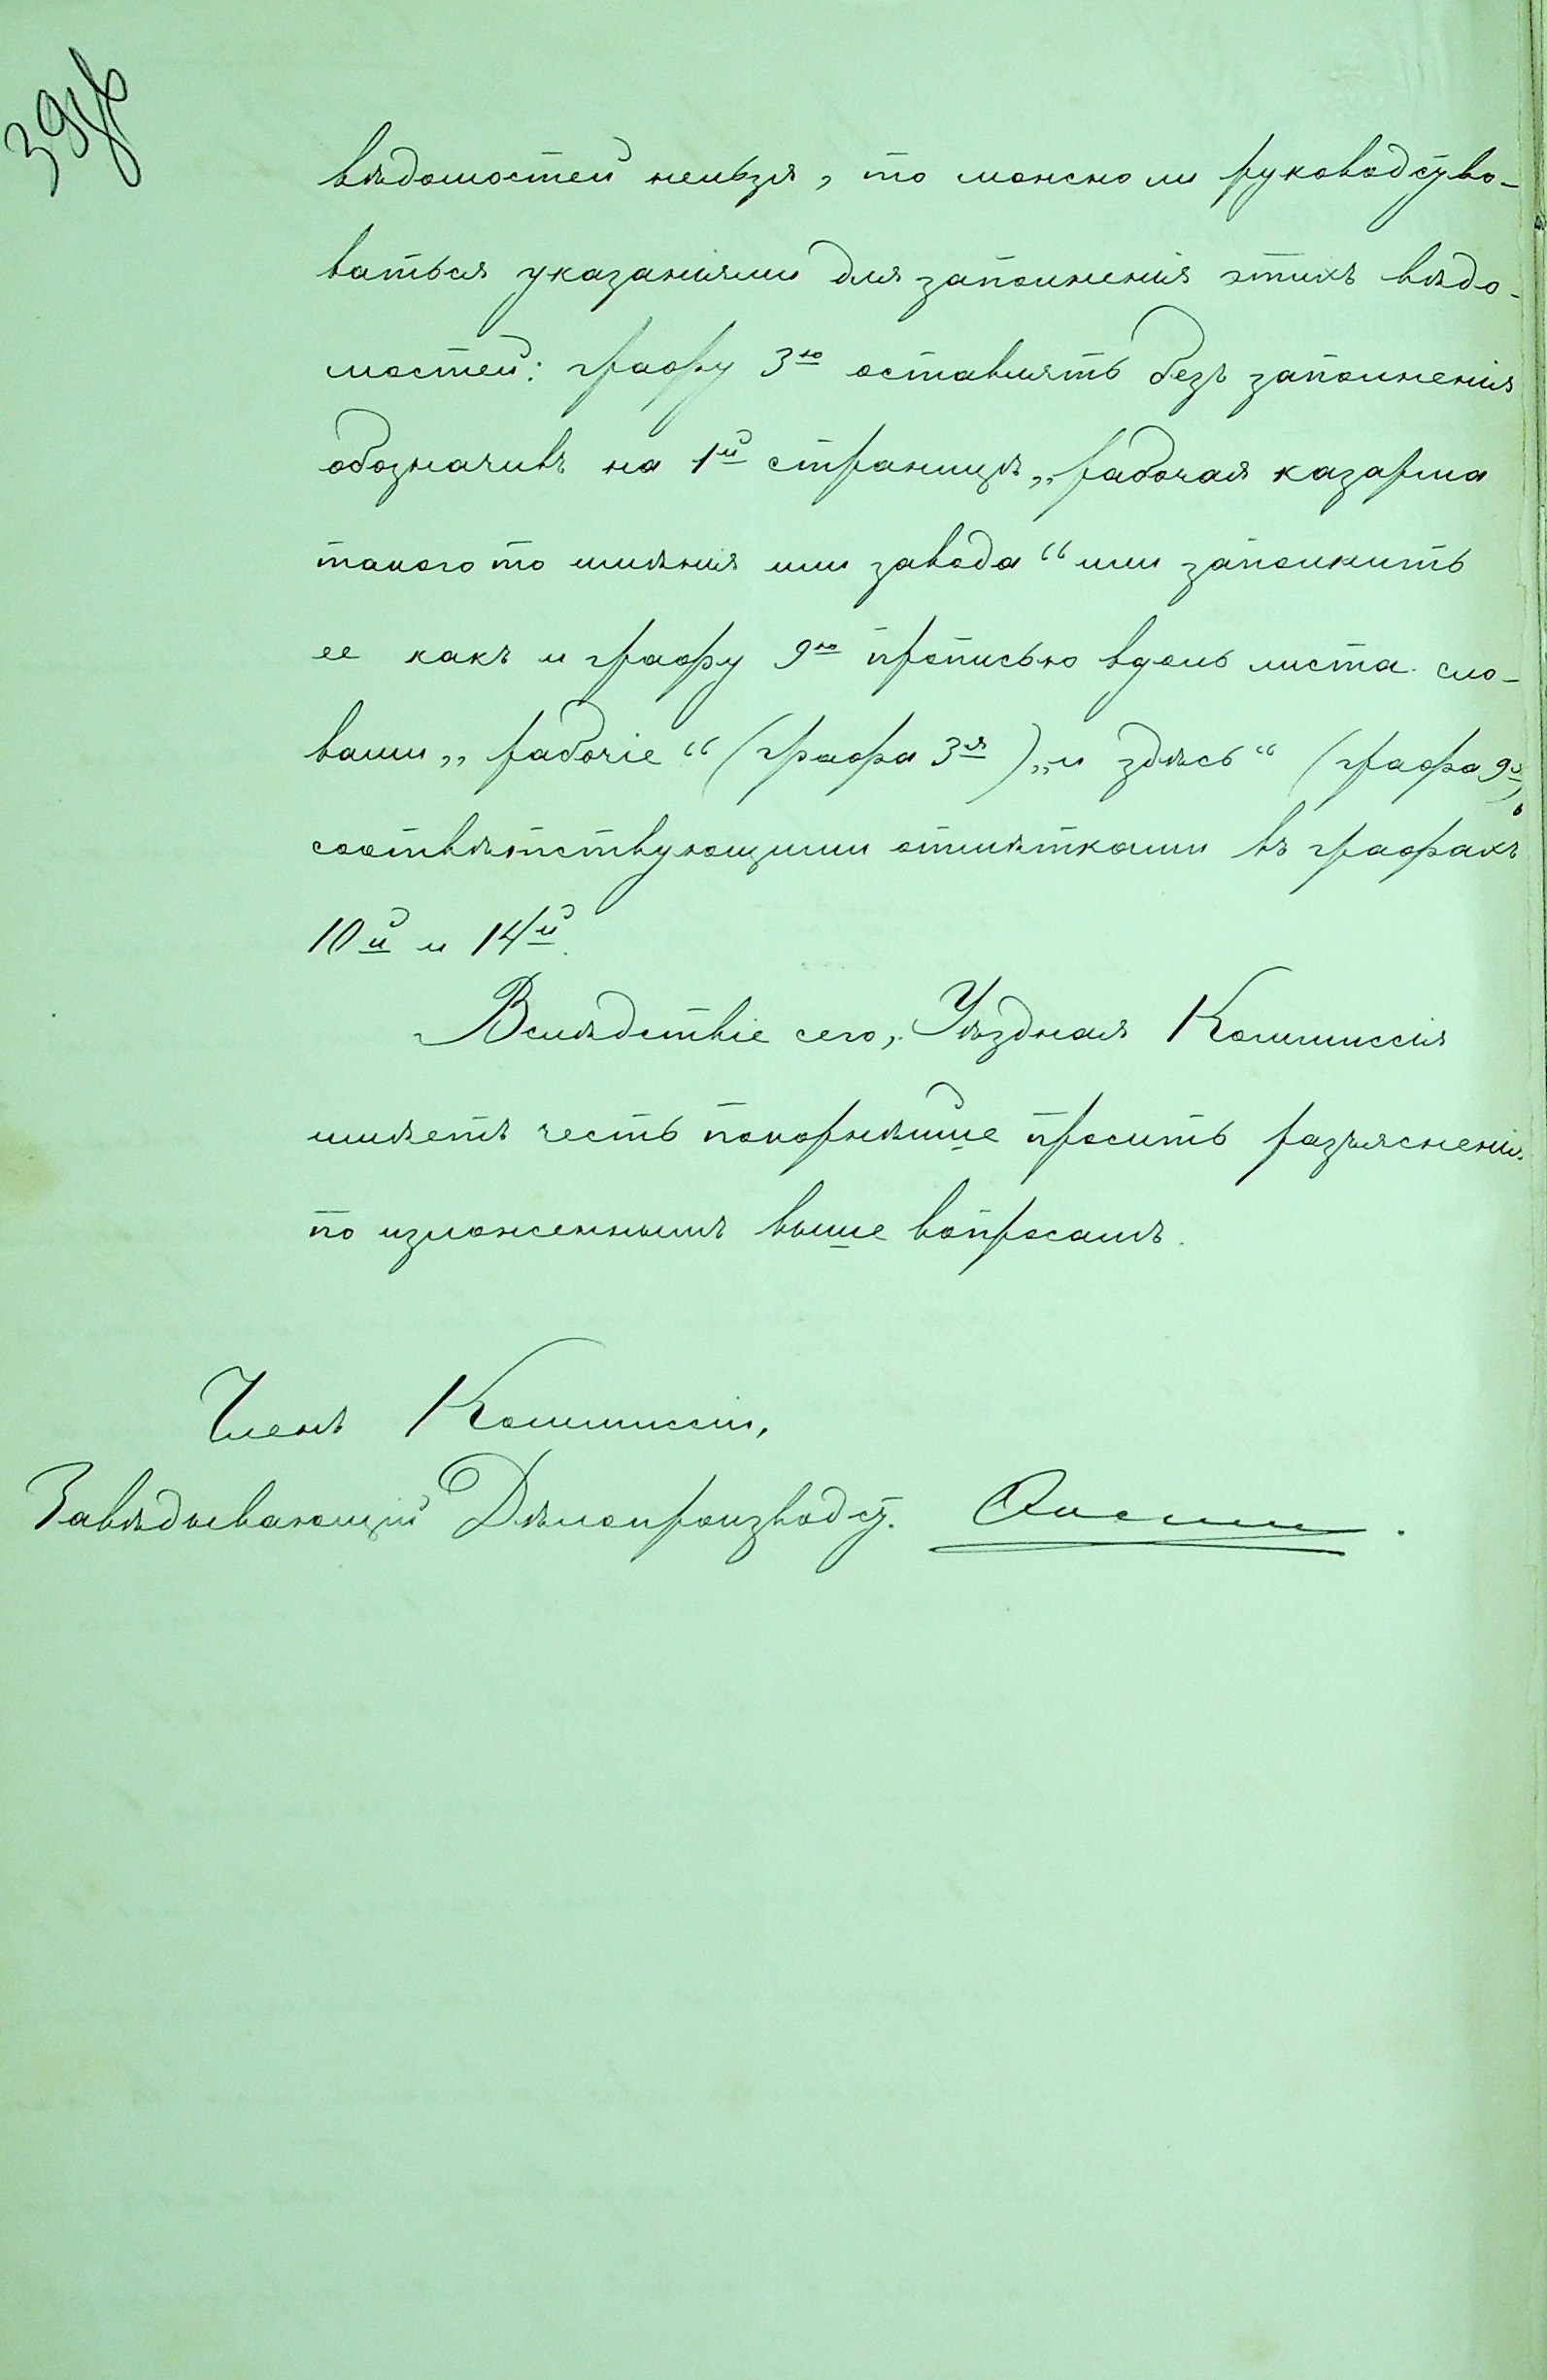 39 об
вѣдомостей нельзя, то можно ли руководство-
ваться указаніями для заполненія этихъ вѣдо-
мостей: графу 3ю оставлять безъ заполненія
обозначивъ на 1й страницѣ „рабочая казарма
такого то имѣнія или завода“ или заполнить
ее какъ и графу 9ю прописью вдоль листа сло-
вами „рабочіе“ (графа 3я) „и здѣсь“ (графа 9я),
соотвѣтствующими отмѣтками въ графахъ
10й и 14й.
Вслѣдствіе сего, Уѣздная Коммиссія
имѣетъ честь покорнѣйше просить разъясненія
по изложеннымъ выше вопросамъ.
Членъ Коммиссіи,
Завѣдывающій Дѣлопроизводст.